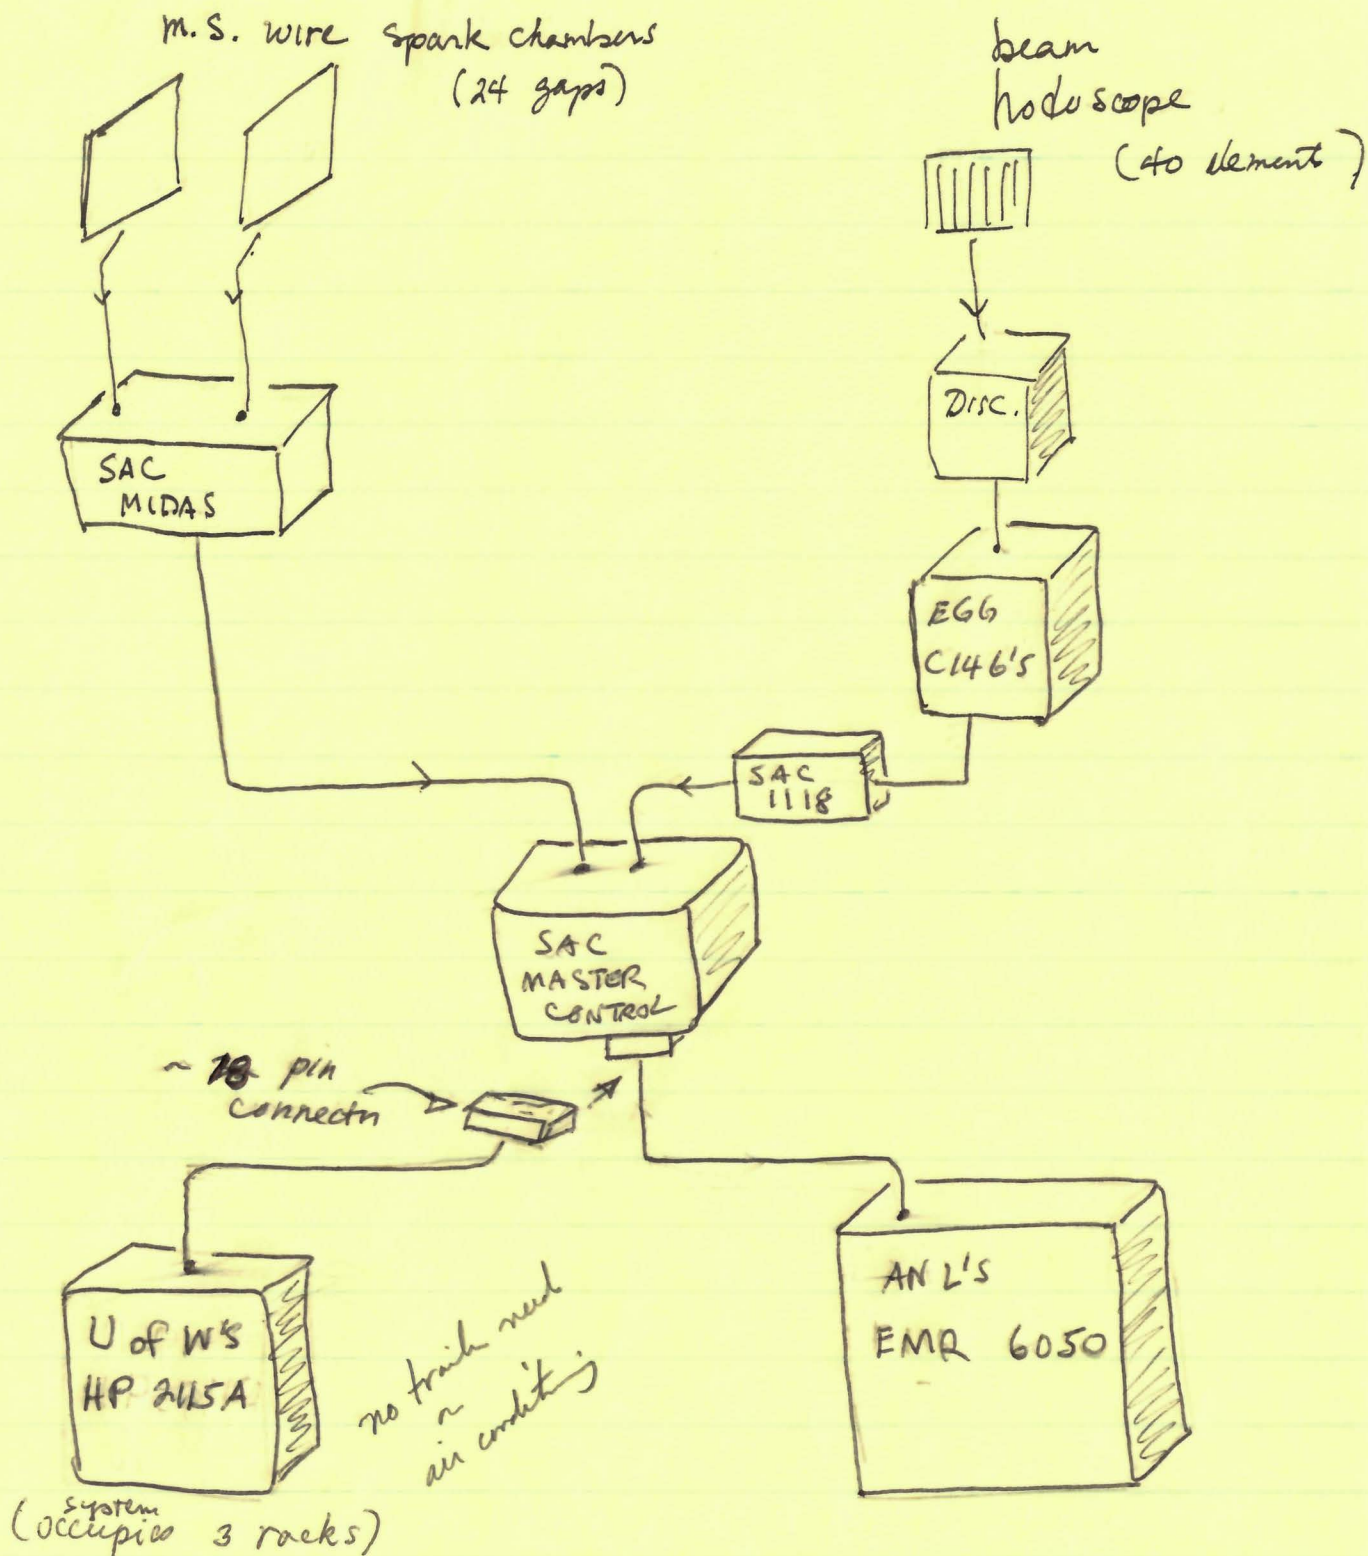 m.s. wire spark chambers
(24 gaps)
beam
hodoscope
(40 element)
DISC.
SAC
MIDAS
EGG
C146's
SAC
1118
SAC
MASTER
CONTROL
~ pin
connectr
U of W's
HP 2115A
no trailer need
or
air conditing
ANL's
EMR 6050
system
(occupies 3 racks)